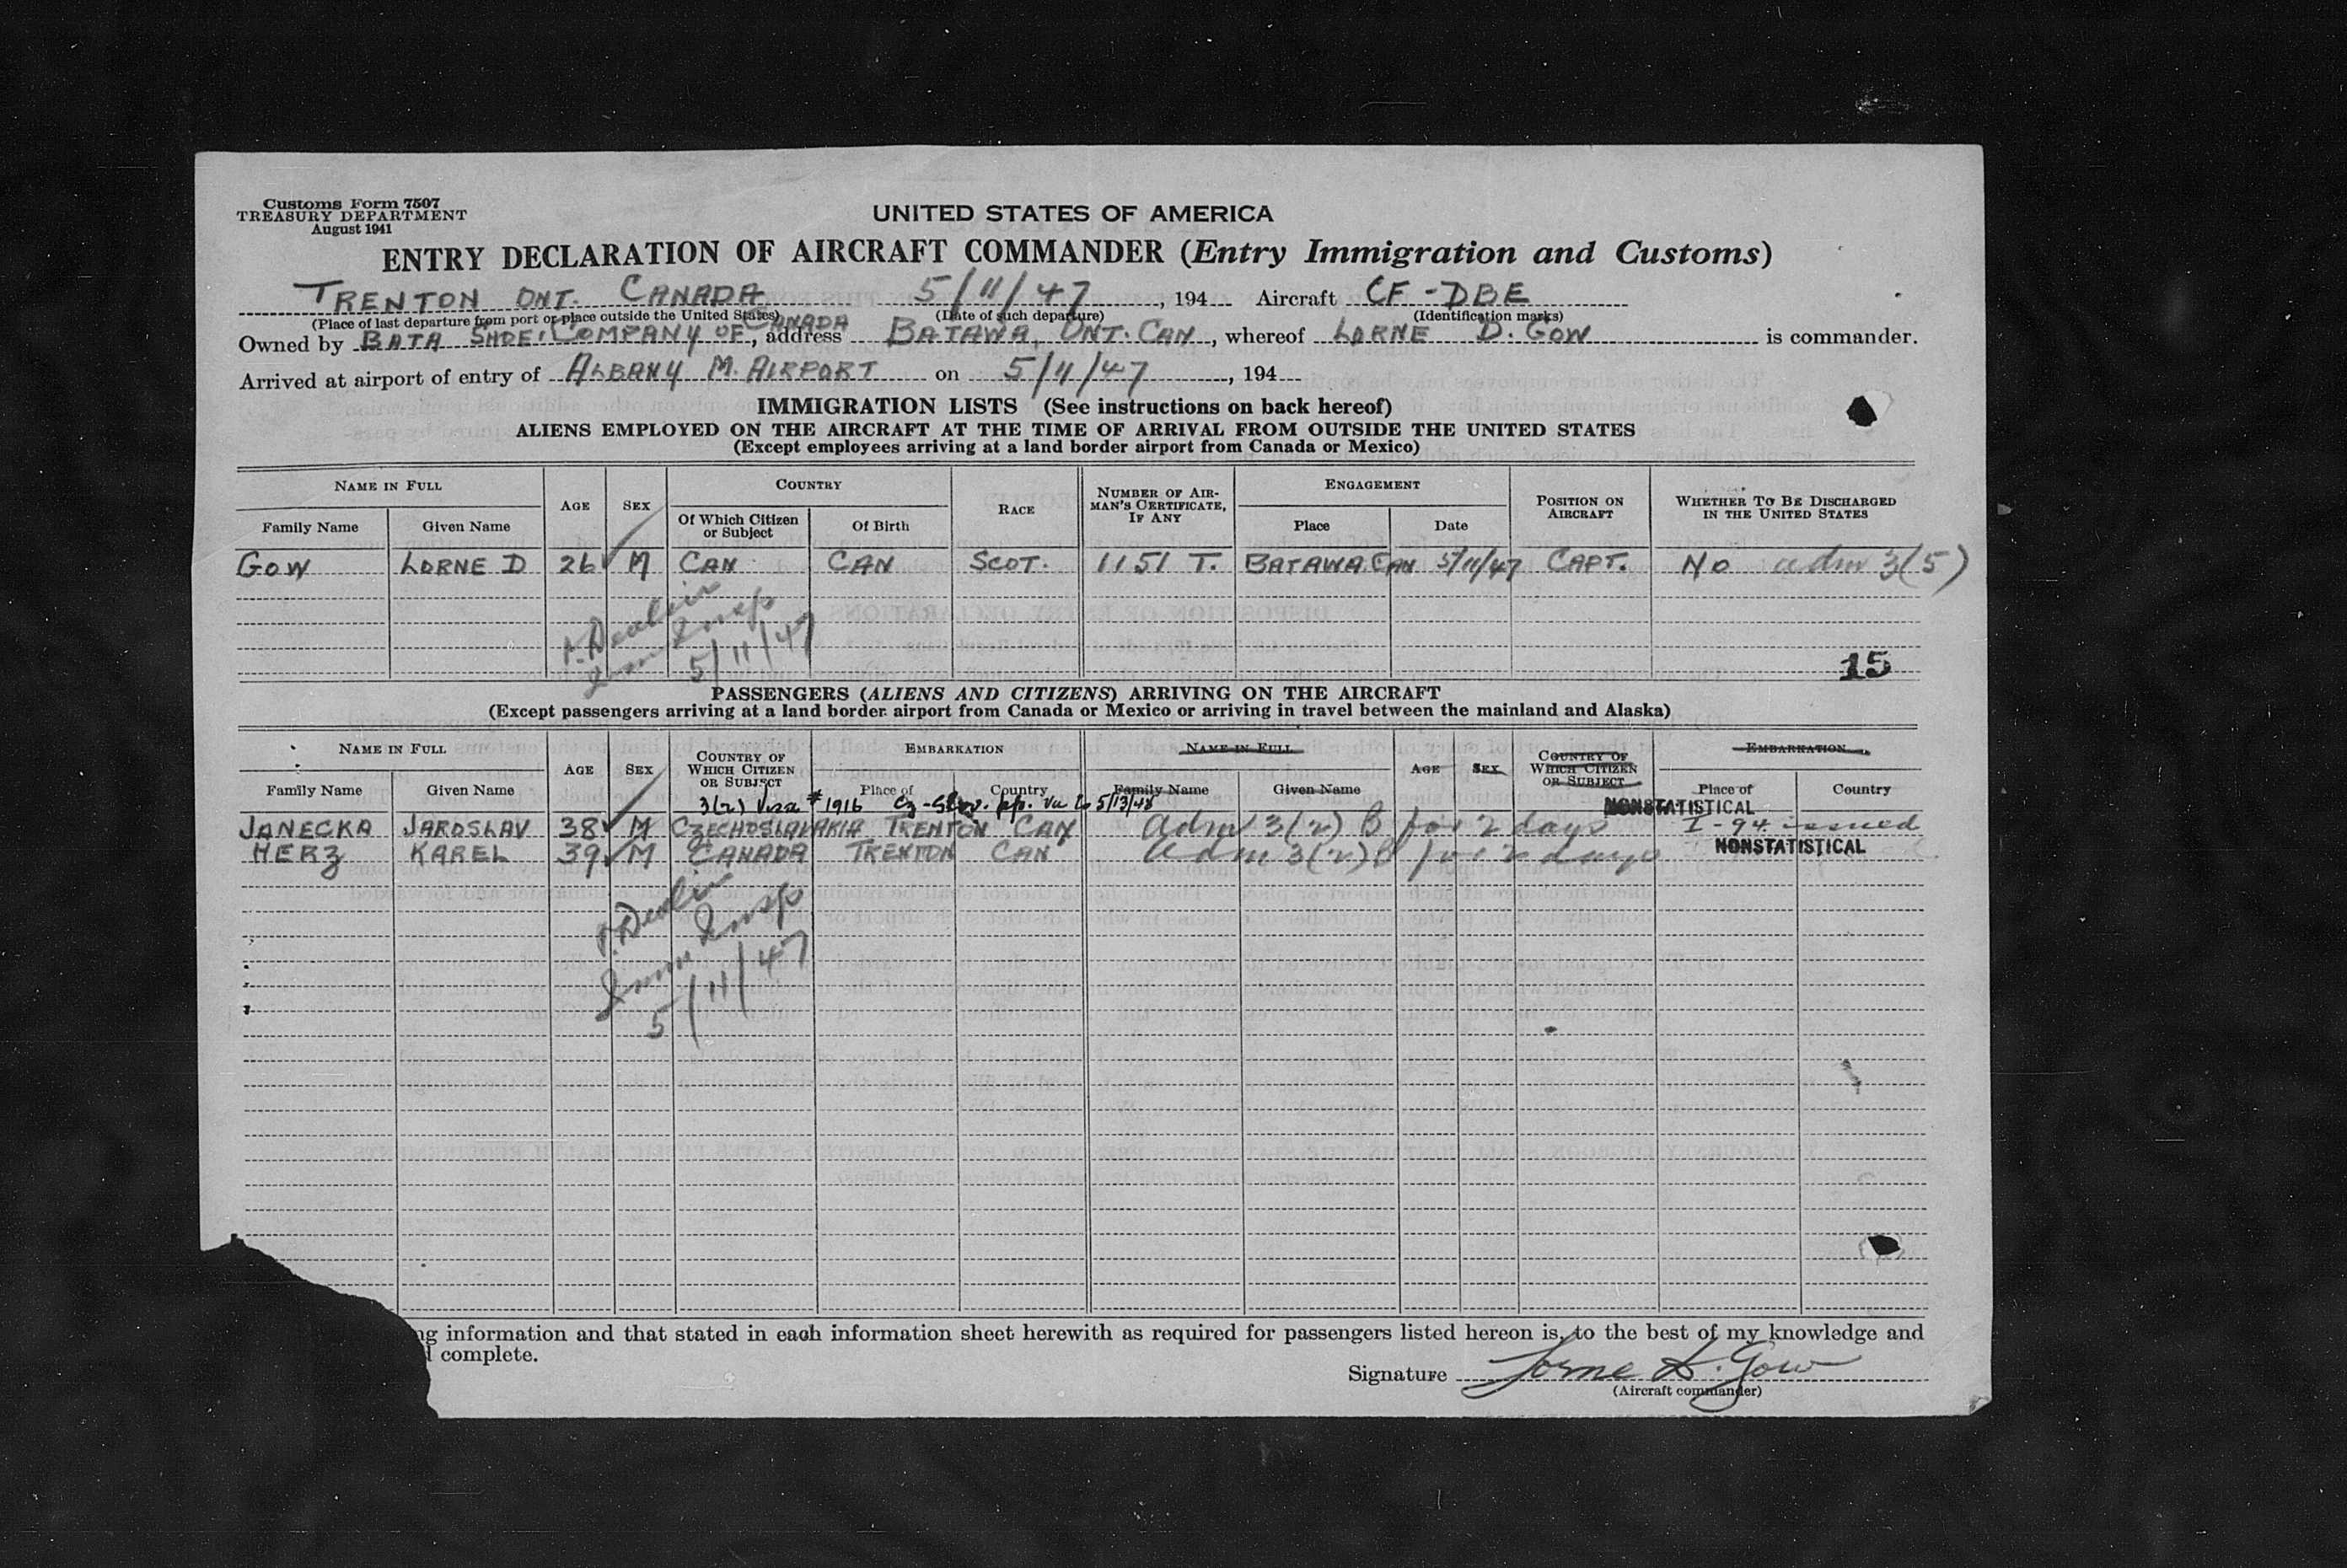 Customs Form 7507
TREASURY DEPARTMENT
August 1941
UNITED STATES OF AMERICA
ENTRY DECLARATION OF AIRCRAFT COMMANDER (Entry Immigration and Customs)
TRENTON ONT. CANADA 5/11/47, 194 Aircraft CF-DBE
(Place of last departure from port or place outside the United States) (Date of such departure) (Identification marks)
Owned by BATA SHOE COMPANY OF CANADA, address BATAWA, ONT. CAN, whereof LORNE D. GOW is commander.
Arrived at airport of entry of ALBANY M. AIRPORT on 5/11/47, 194
IMMIGRATION LISTS (See instructions on back hereof)
ALIENS EMPLOYED ON THE AIRCRAFT AT THE TIME OF ARRIVAL FROM OUTSIDE THE UNITED STATES
(Except employees arriving at a land border airport from Canada or Mexico)
NAME IN FULL AGE SEX COUNTRY RACE NUMBER OF AIRMAN'S CERTIFICATE, IF ANY ENGAGEMENT POSITION ON AIRCRAFT WHETHER TO BE DISCHARGED IN THE UNITED STATES
Family Name Given Name Of Which Citizen or Subject Of Birth Place Date
GOW LORNE D 26 M CAN CAN SCOT. 1151 T. BATAWA CAN 5/11/47 CAPT. NO adm 3(5)
Imm Insp
5/11/47
15
PASSENGERS (ALIENS AND CITIZENS) ARRIVING ON THE AIRCRAFT
(Except passengers arriving at a land border airport from Canada or Mexico or arriving in travel between the mainland and Alaska)
NAME IN FULL AGE SEX COUNTRY OF WHICH CITIZEN OR SUBJECT EMBARKATION NAME IN FULL AGE SEX COUNTRY OF WHICH CITIZEN OR SUBJECT EMBARKATION
Family Name Given Name Place of Country Family Name Given Name Place of Country
3(2) visa #1916 Cz-Slov. pp. 5/13/48 NONSTATISTICAL
JANECKA JAROSLAV 38 M CZECHOSLAVAKIA TRENTON CAN Adm 3(2) B for 2 days I-94 issued
HERZ KAREL 39 M CANADA TRENTON CAN adm 3(2) B for 2 days NONSTATISTICAL
Imm Insp
5/11/47
ng information and that stated in each information sheet herewith as required for passengers listed hereon is, to the best of my knowledge and
complete.
Signature Lorne D. Gow
(Aircraft commander)